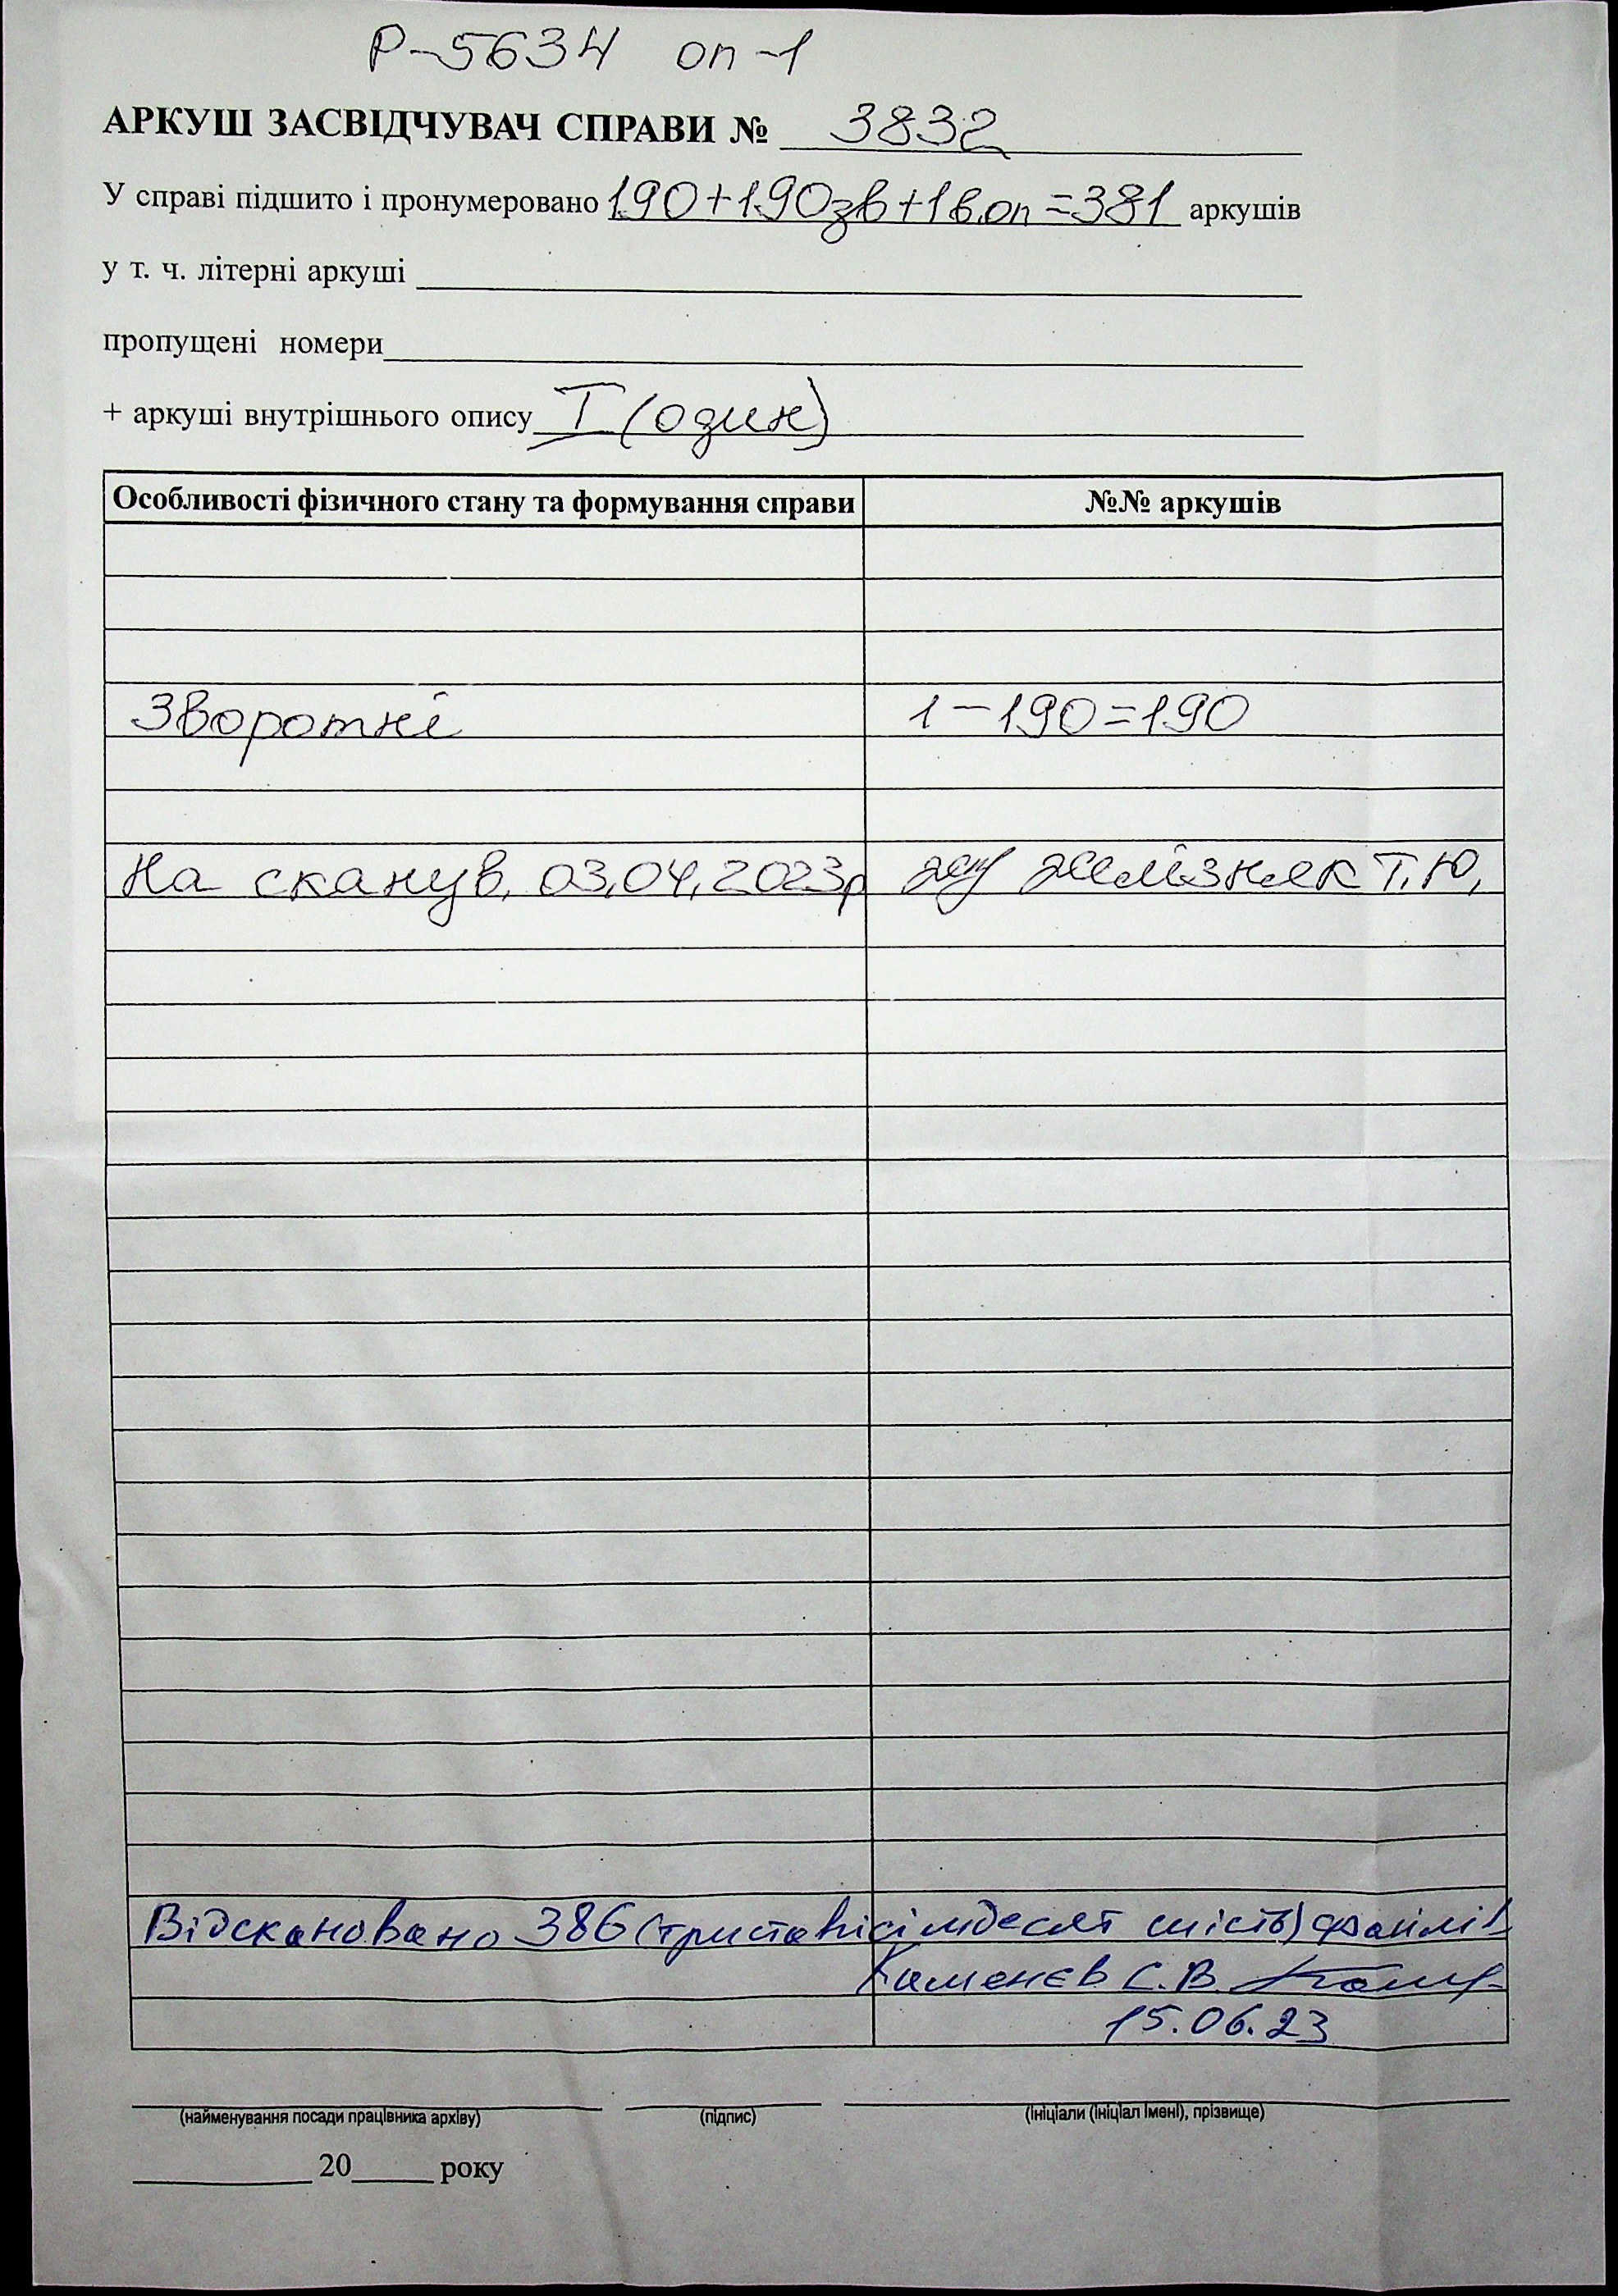 Р-5634 оп-1
АРКУШ ЗАСВІДЧУВАЧ СПРАВИ № 3832
У справі підшито і пронумеровано 190+190зв+1в.оп=381 аркушів
у т. ч. літерні аркуші
пропущені номери
+ аркуші внутрішнього опису I (один)
Особливості фізичного стану та формування справи №№ аркушів
Зворотні 1-190=190
На сканув. 03.04.2023р Желізняк Т.Ю.
Відскановано 386 (триста вісімдесят шість) файлів
Каменєв С.В.
15.06.23
(найменування посади працівника архіву) (підпис) (ініціали (ініціал імені), прізвище)
20 року